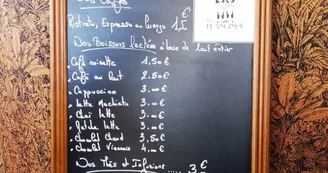 Nos Cafés
Ristretto, Espresso ou Lungo 1,5 €
Nos Boissons lactées à base de lait entier
Café noisette 1.50 €
Café au lait 2.50 €
Cappuccino 3.00 €
Latte Machiato 3.00 €
Chai latte 3.00 €
Golden latte 3.00 €
Chocolat Chaud 3.50 €
Chocolat Viennois 4.00 €
Nos Thés et Infusions ..... 3 €